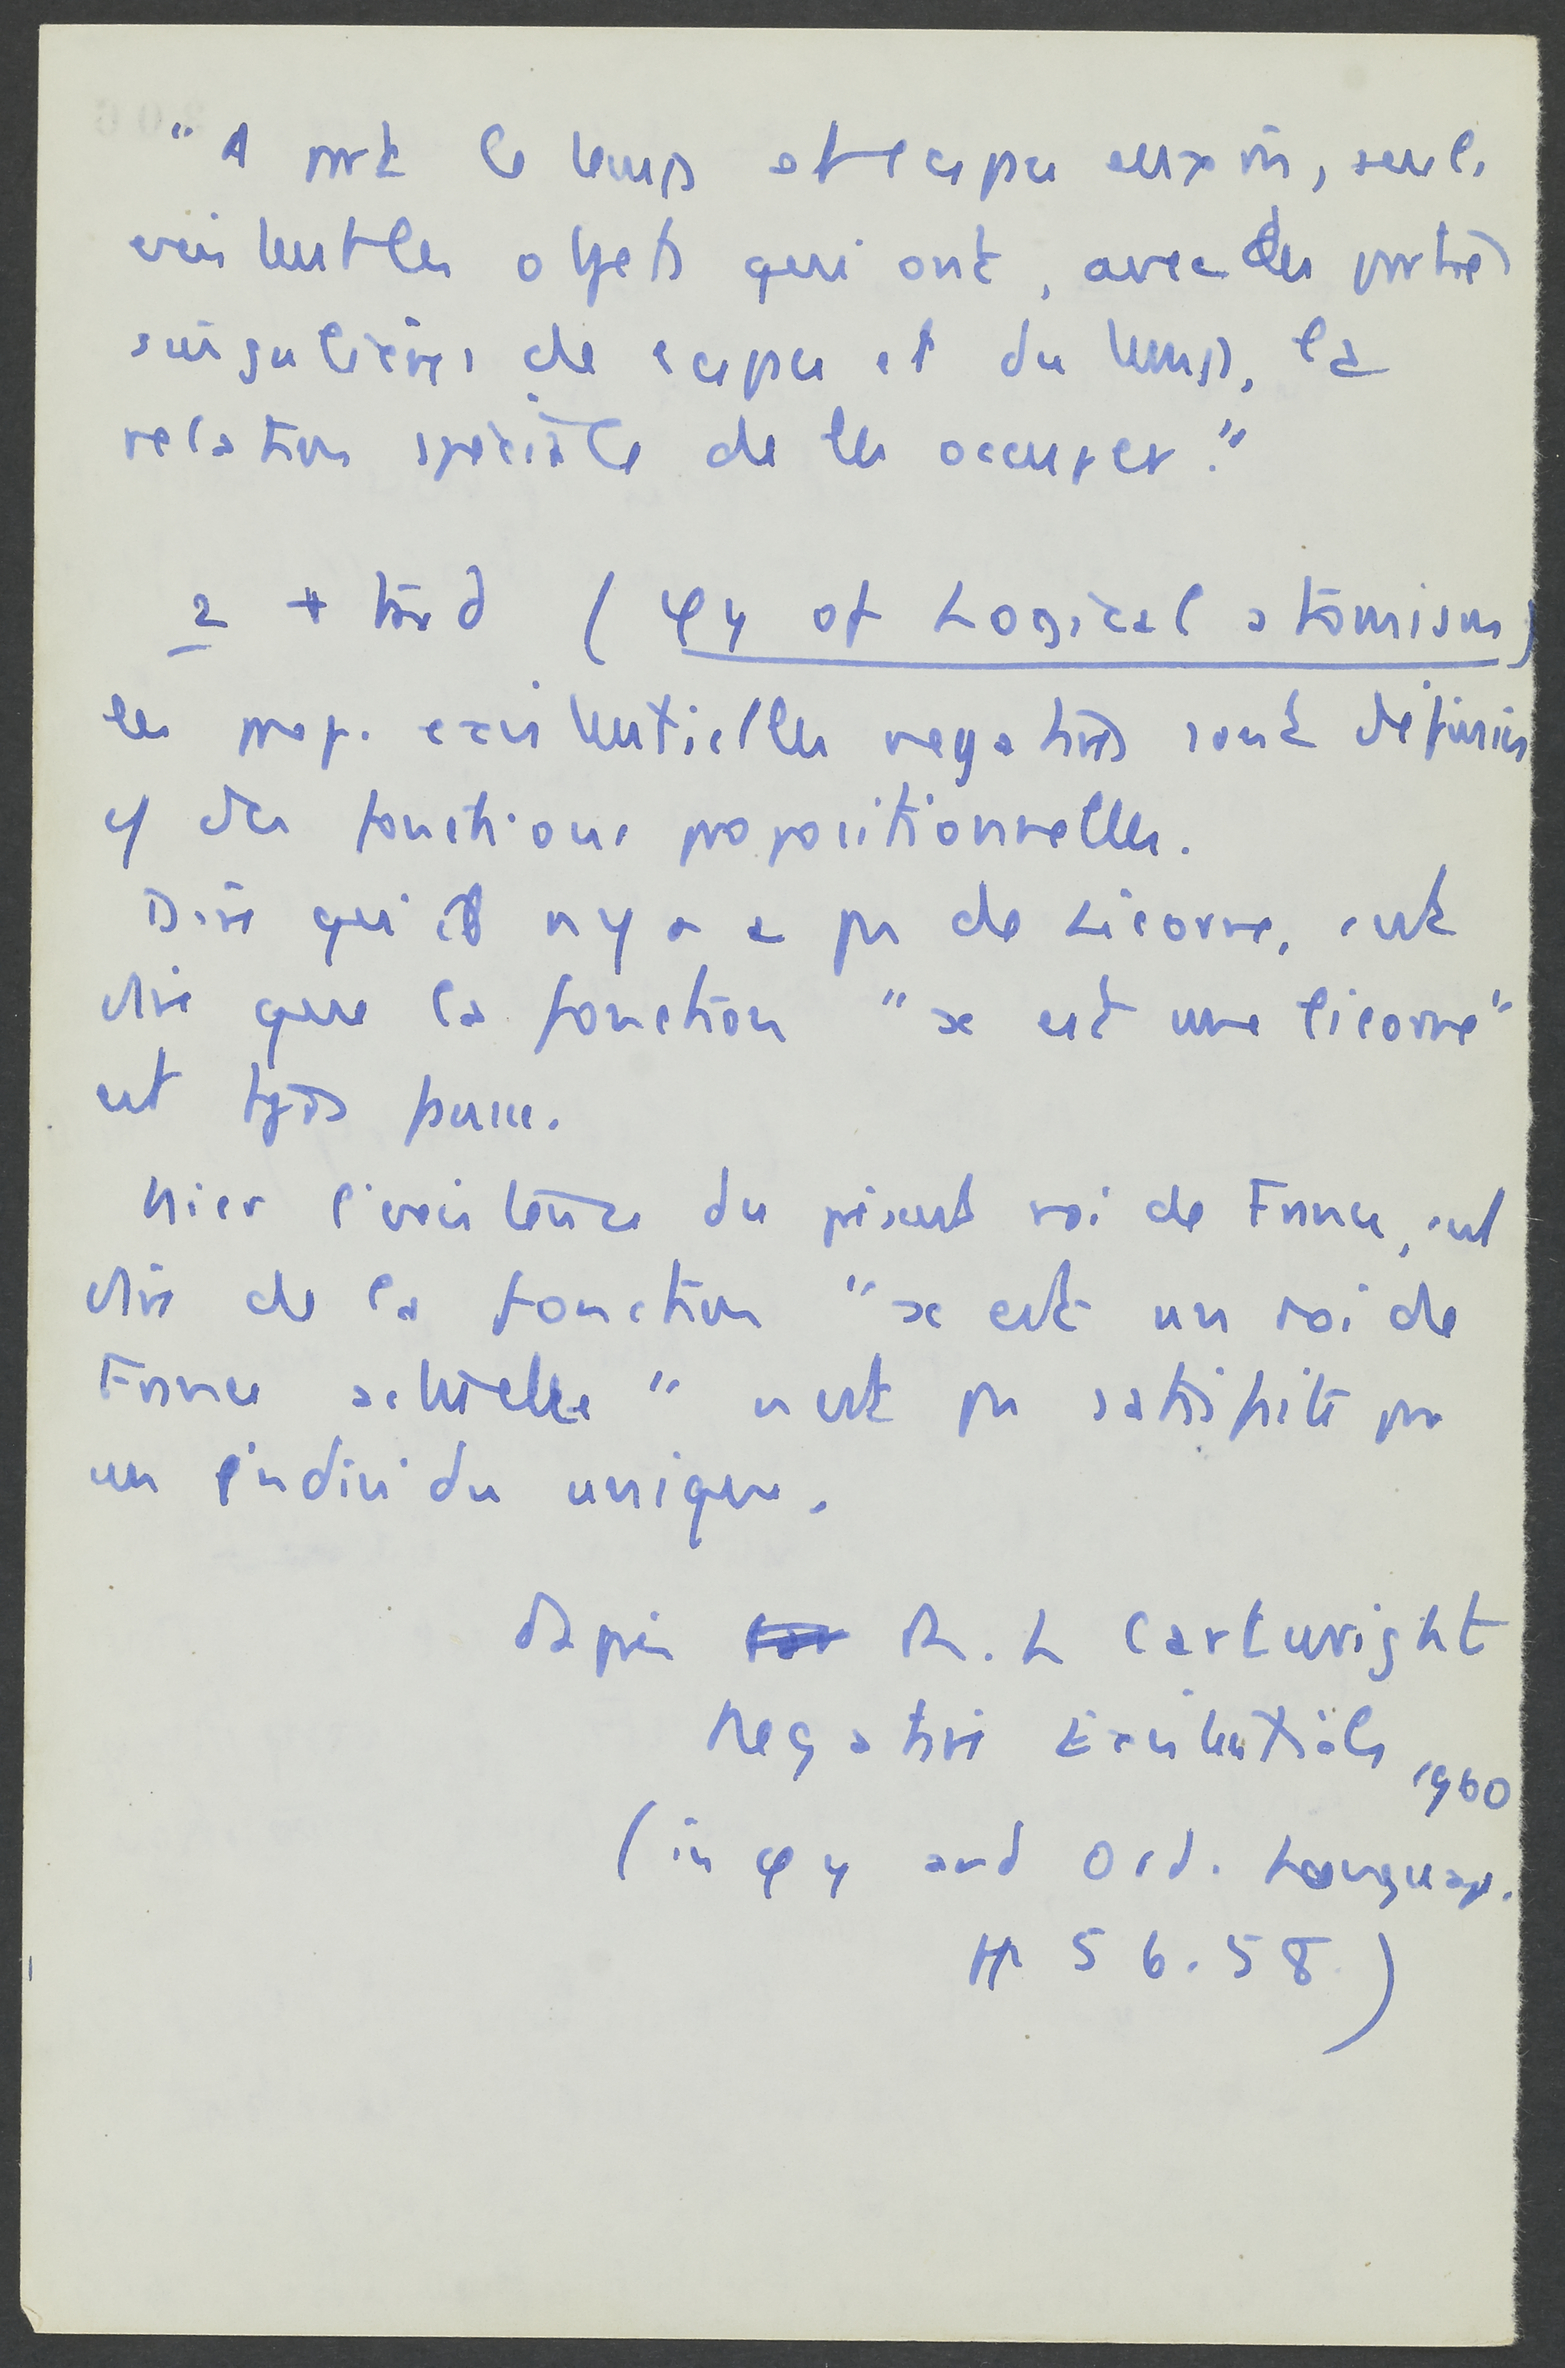 "A part le temps et l'espace eux-mêmes, seuls
existent les objets qui ont, avec des parties
singulières de l'espace et du temps, la
relation spéciale de les occuper."
2 + tard (φy of Logical atomism)
les prop. existentielles negatives sont définies
p des fonctions propositionnelles.
Dire qu'il n'y a pas de Licorne, c'est
dire que la fonction "x est une licorne"
est tjrs fausse.
Nier l'existence du présent roi de France, c'est
dire de la fonction "x est un roi de
France actuelle" n'est pas satisfaite par
un individu unique.
d'après R.L Cartwright
Negative Existentials 1960
(in φy and Ord. Language.
pp 56.58)